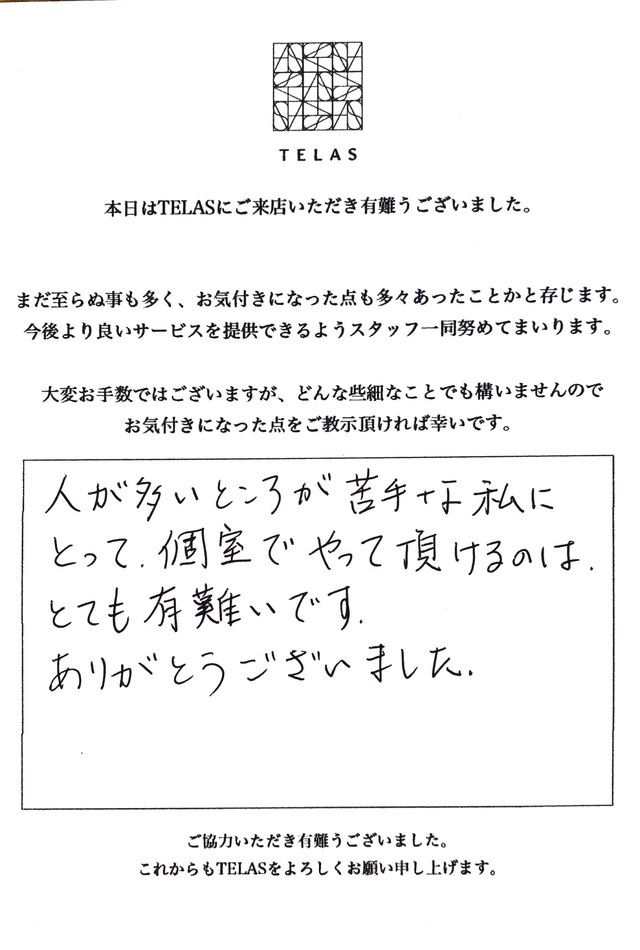 TELAS
本日はTELASにご来店いただき有難うございました。
まだ至らぬ事も多く、お気付きになった点も多々あったことかと存じます。
今後より良いサービスを提供できるようスタッフ一同努めてまいります。
大変お手数ではございますが、どんな些細なことでも構いませんので
お気付きになった点をご教示頂ければ幸いです。
人が多いところが苦手な私に
とって、個室でやって頂けるのは、
とても有難いです。
ありがとうございました。
ご協力いただき有難うございました。
これからもTELASをよろしくお願い申し上げます。